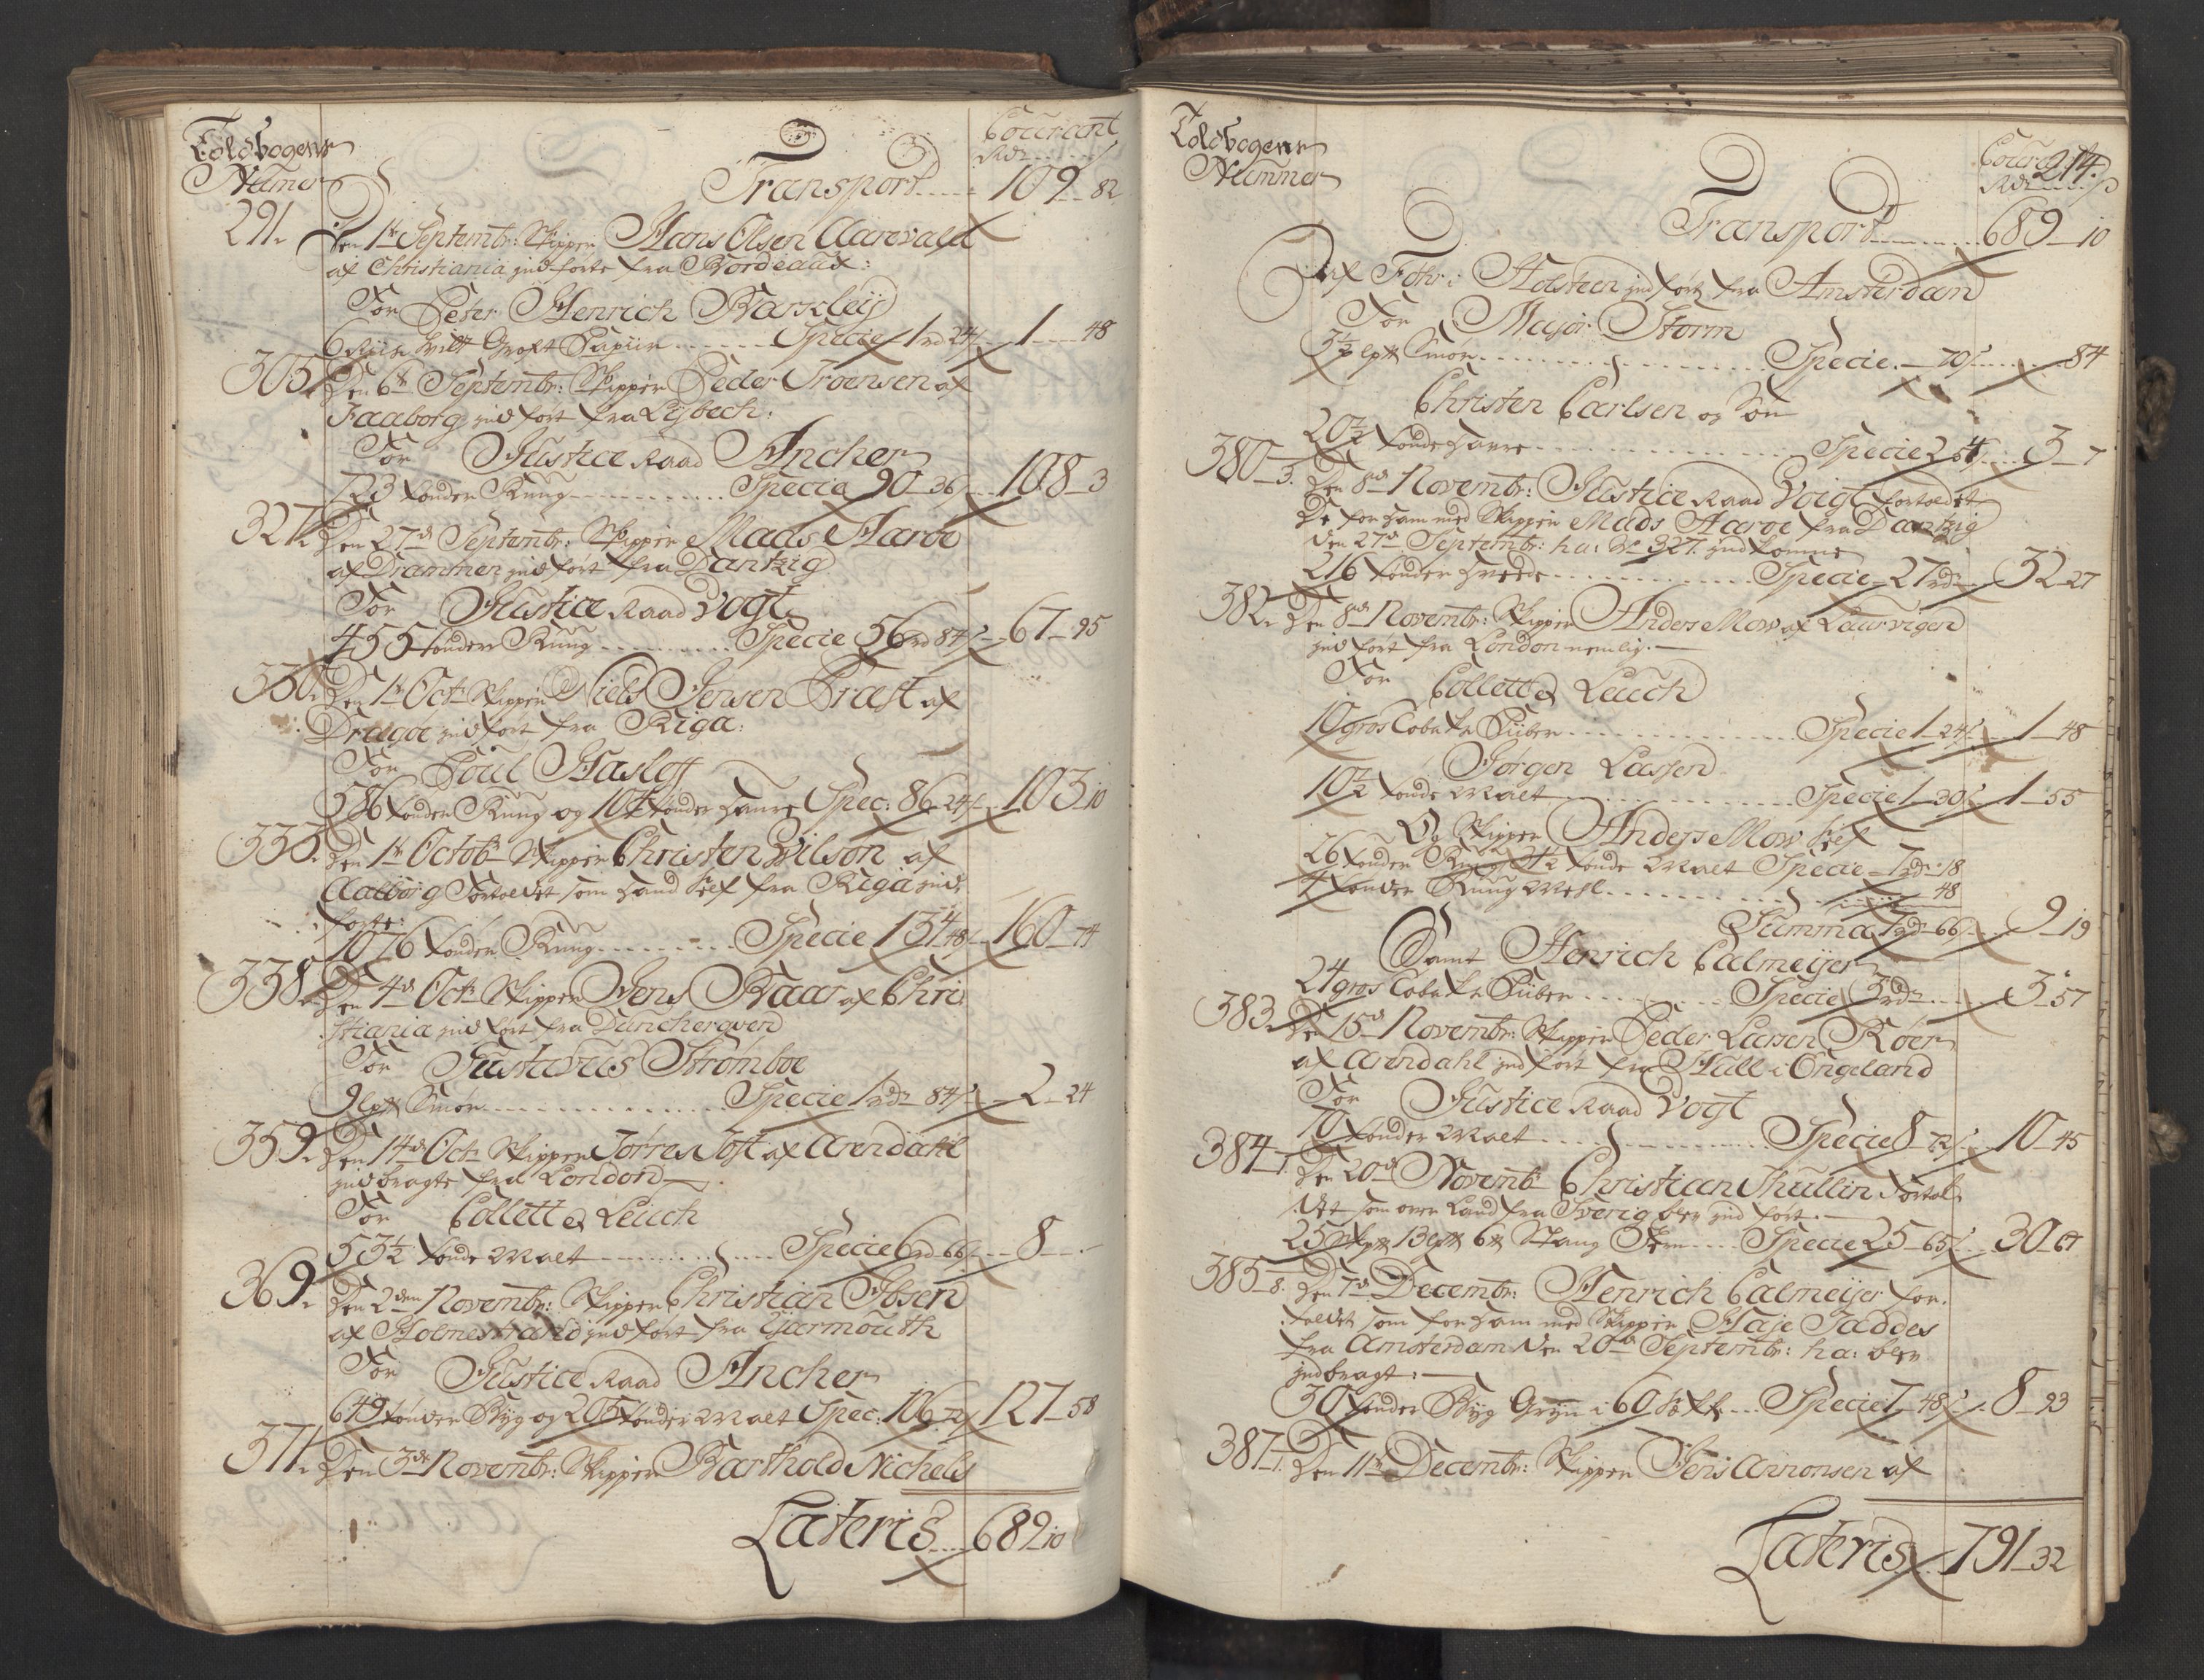 Toldbogens
Numer
Courant
Rdr
Transport 109 82
291. Den 1te Septembr: Skipper Hans Olsen Aarevald
af Christiania indførte fra Bordeaux:
For Peter Henrich Barkleij
6 Riis hvidt Groft Papiir Specie 1rd 24 1 48
305. Den 6te Septembr: Skipper Peder Troensen af
Faaborg ind ført fra Lybech:
For Justice Raad Ancher
723 tønder Rug Specie 90 36 108 3
327. Den 27de Septembr: Skipper Mads Aaroe
af Drammen ind ført fra Dantzig
For Justice Raad Vogt
455 tønder Rug Specie 56rd 84 67 95
330. Den 1te Octr Skipper Niels Jensen Præst af
Dragøe ind ført fra Riga:
For Poul Hasloff
586 tønder Rug og 104 tønder havre Spec: 86 24 103 10
333. Den 1te Octobr Skipper Christen Wilson af
Aalborg Fortoldet som hand self fra Riga ind
førte:
1076 tønder Rug Specie 134 48 160 74
338. Den 4de Octr Skipper Jens Baar af Chri
stiania ind ført fra Dunchergven
For Justiceus Strømboe
9 lp Smør Specie 1rdr 84 2 24
359. Den 14de Octr Skipper Tørres Toft af Arendahl
indbragte fra London
For Collett & Leuch
53½ tønde Malt Specie 6rd 66 8
369. Den 2den Novembr: Skipper Christian Ibsen
af Holmestrand ind ført fra Yarmouth
For Justice Raad Ancher
649 tønder Byg og 205 tønder Malt Spec: 106 72 127 58
371. Den 3de Novembr: Skipper Barthold Nichels
Lateris 689 10
Toldbogens
Nummer
Courant
Rdr
214.
Transport 689 10
af Føhr i Holsteen ind ført fra Amsterdam
For Major Storm
3½ lp Smør Specie 70 84
Christen Carlsen og Søn
20½ tønde havre Specie 2 54 3 7
380-3. Den 8de Novembr: Justice Raad Voigt fortoldet
De for ham med Skipper Mads Aaroe fra Dantzig
den 27de Septembr: ha: No 327. ind komne
216 tønder hvede Specie 27rdr 32 27
382. Den 8de Novembr: Skipper Anders Mow af Laurvigen
ind ført fra London nemlig.
For Collett & Leuch
10 gros Tobaks Piiber Specie 1 24 1 48
Jørgen Lassen
10½ tønde Malt Specie 1 30 1 55
Og Skipper Anders Mow self
26 tønder Rug 31½ tønde Malt Specie 7rdr 18
4 tønder Rug Mehl 48
Summa 7rdr 66 9 19
Samt Henrich Calmeijer
24 gros Tobaks Piiber Specie 3rdr 3 57
383. Den 15de Novembr: Skipper Peder Larsen Røer
af Arendahl ind ført fra Hull i Engeland
For Justice Raad Vogt
70 tønder Malt Specie 8 72 10 45
384-1. Den 20de Novembr Christian Thullin Fortol
det som over Land fra Sverig blev ind ført.
25 Skp 13 lp 6 Stang Jern Specie 25 65 30 67
385-8. Den 7de Decembr: Henrich Calmeijer for
toldet som for ham med Skipper Haje Taddes
fra Amsterdam den 20de Septembr: ha: blev
indbragt:
30 tønder Byg Gryn i 60 Sække Specie 7 48 8 93
387-1. Den 11te Decembr: Skipper Jens Annonsen af
Lateris 791 32